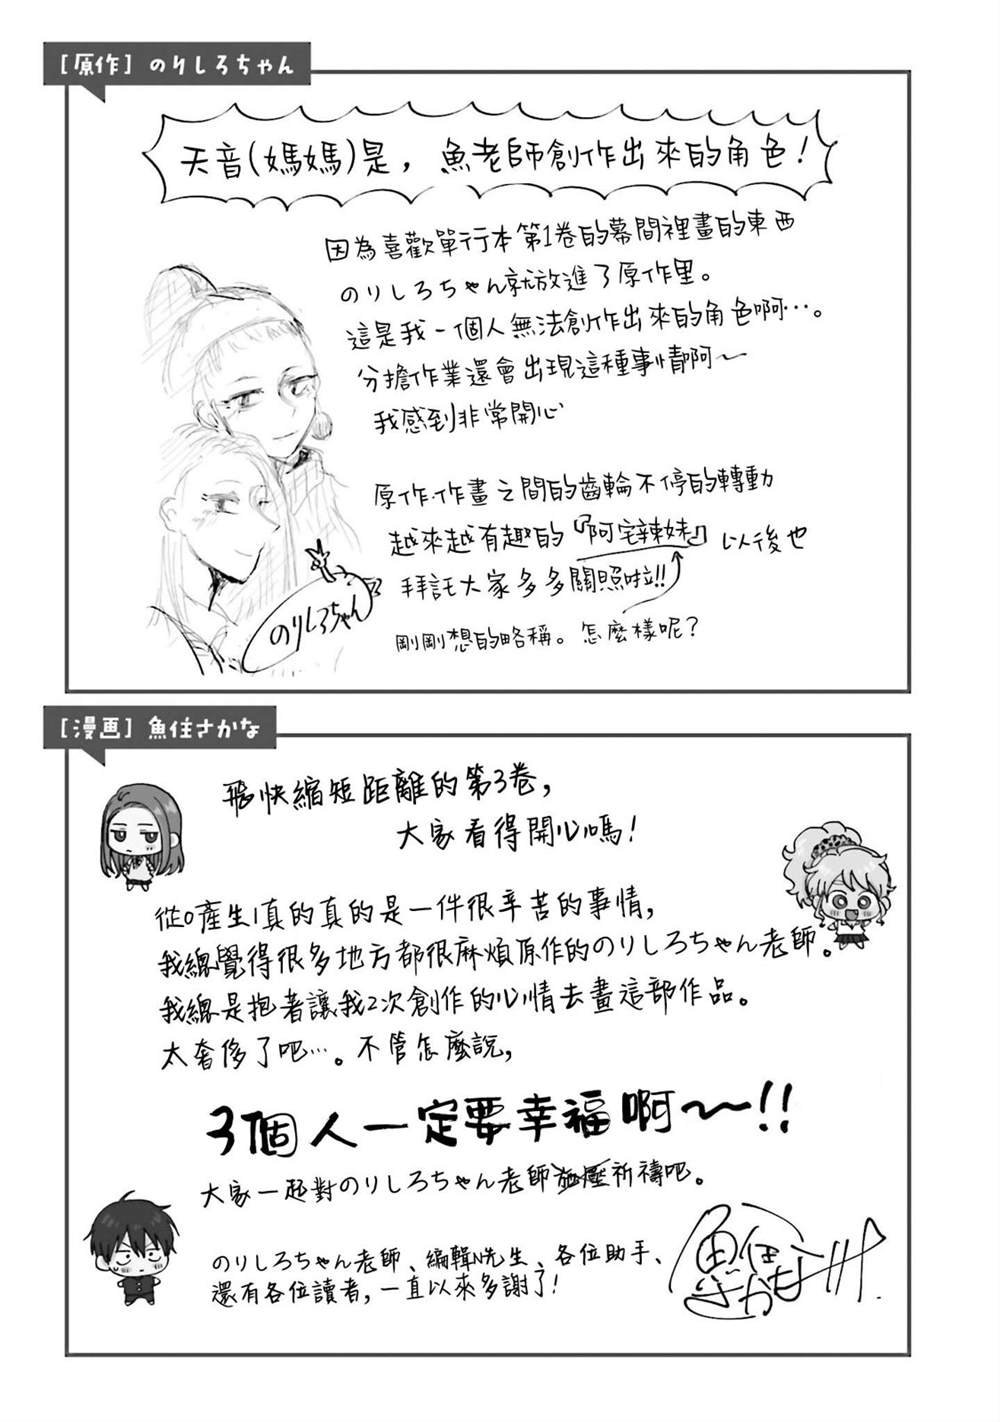 [原作] のりしろちゃん
天音(媽媽)是，魚老師創作出來的角色！
因為喜歡單行本第1卷的幕間裡畫的東西
のりしろちゃん就放進了原作里。
這是我一個人無法創作出來的角色啊…。
分擔作業還會出現這種事情啊～
我感到非常開心
原作作畫之間的齒輪不停的轉動
越來越有趣的『阿宅辣妹』以後也
拜託大家多多關照啦!!
剛剛想的略稱。怎麼樣呢？
のりしろちゃん
[漫画] 魚住さかな
飛快縮短距離的第3卷，
大家看得開心嗎！
從0產生1真的真的是一件很辛苦的事情，
我總覺得很多地方都很麻煩原作的のりしろちゃん老師。
我總是抱著讓我2次創作的心情去畫這部作品。
太奢侈了吧…。不管怎麼說，
3個人一定要幸福啊～～!!
大家一起對のりしろちゃん老師施壓祈禱吧。
のりしろちゃん老師、編輯N先生、各位助手、
還有各位讀者，一直以來多謝了！
魚住さかな